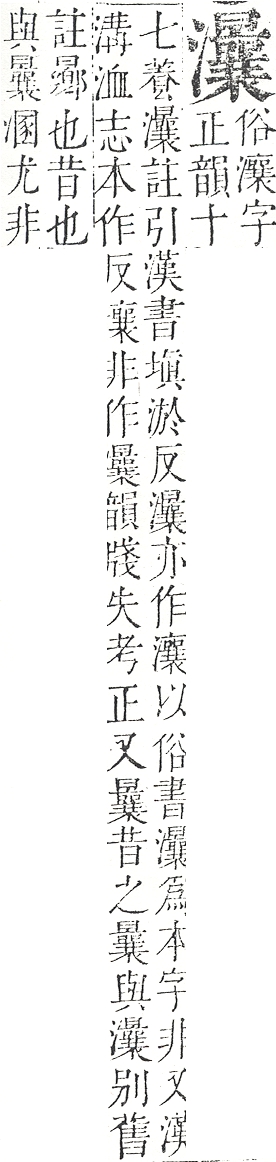 灢
俗瀼字
正韻十
七養灢註引漢書塡淤反灢亦作瀼以俗書灢爲本字非又漢
溝洫志本作反襄非作曩韻牋失考正又曩昔之曩與灢別舊
註曏也昔也
與曩溷尤非